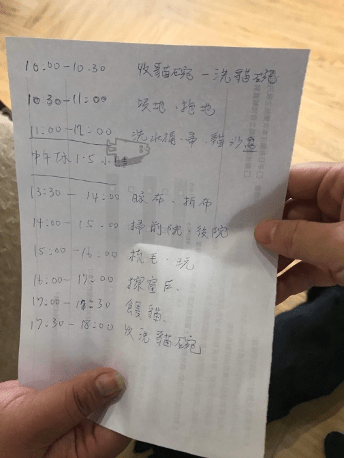 10:00-10:30 收貓碗-洗貓碗
10:30-11:00 吸地、拖地
11:00-12:00 洗水桶、傘、貓沙盆
中午休1.5小時
13:30-14:00 膠布、抹布
14:00-15:00 掃前院、後院
15:00-16:00 梳毛、玩
16:00-17:00 擦窗戶
17:00-17:30 餵貓
17:30-18:00 收洗貓碗